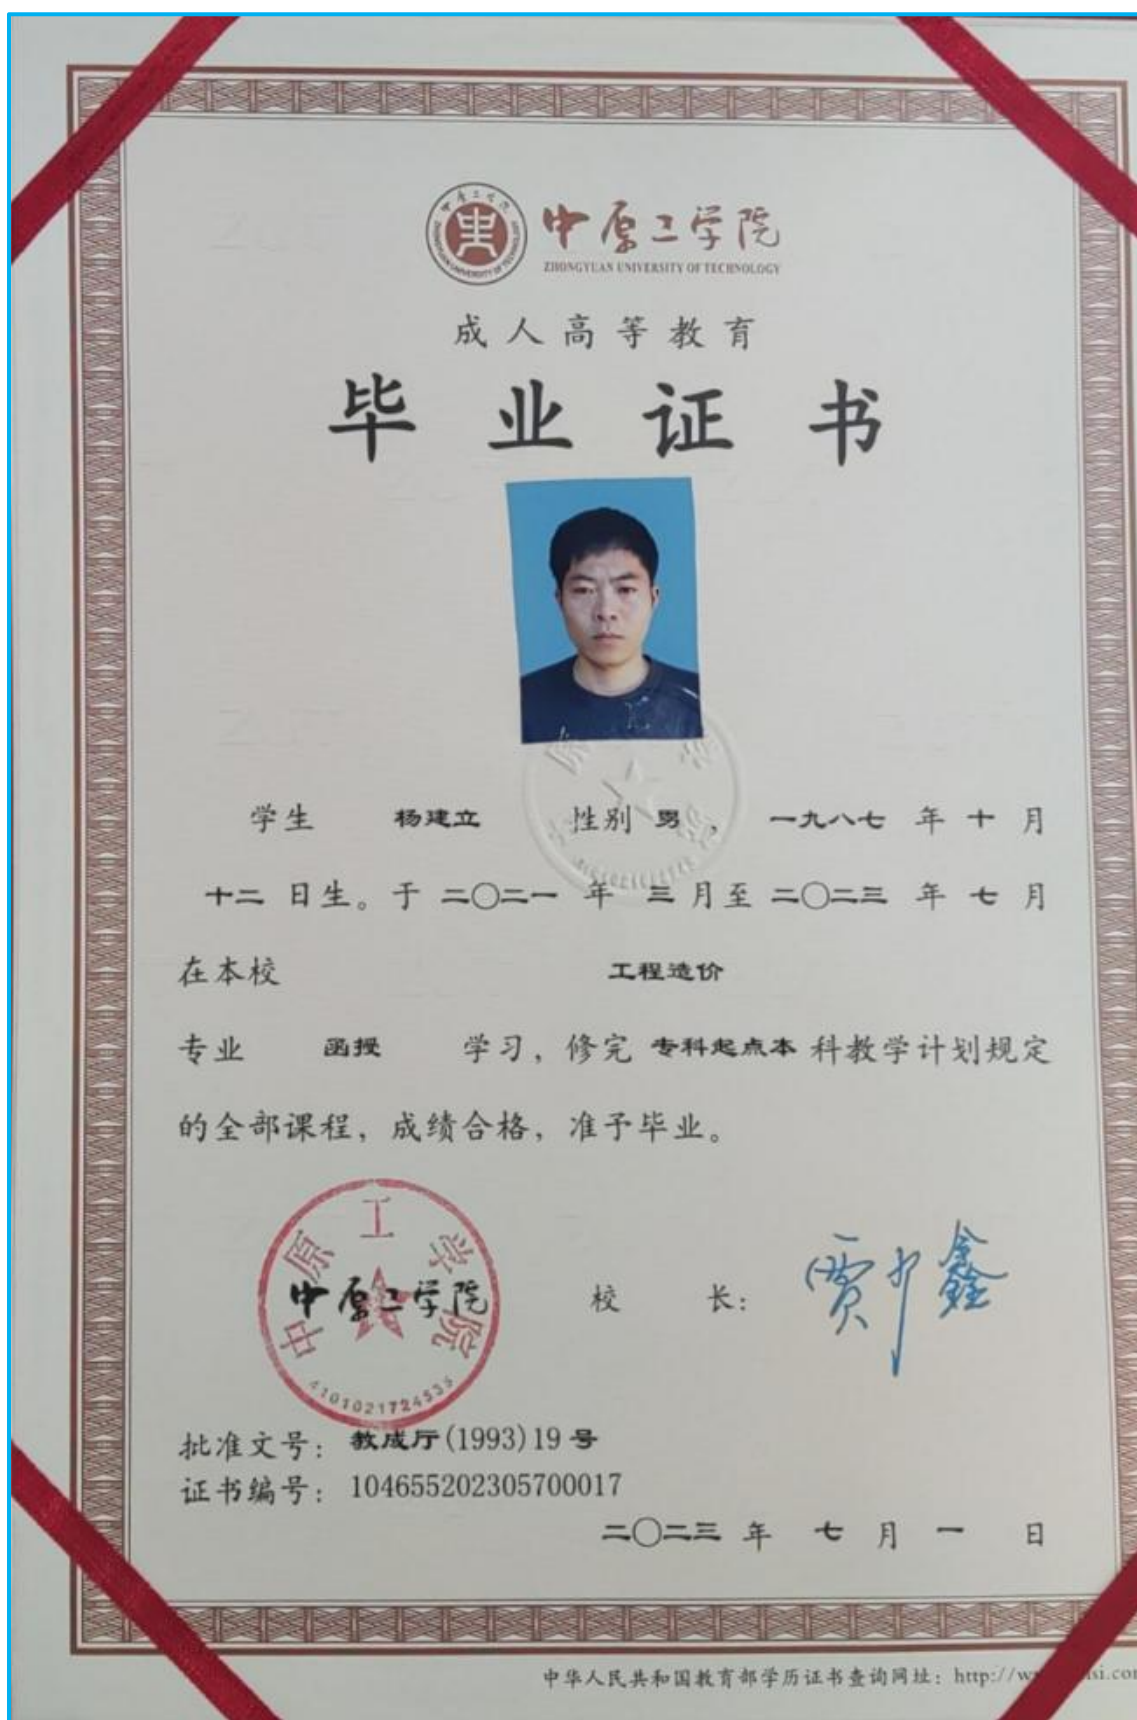 中原工学院
ZHONGYUAN UNIVERSITY OF TECHNOLOGY
成人高等教育
毕业证书
学生 杨建立 性别 男， 一九八七 年 十 月
十二 日生。于 二〇二一 年 三 月至 二〇二三 年 七 月
在本校 工程造价
专业 函授 学习，修完 专科起点本 科教学计划规定
的全部课程，成绩合格，准予毕业。
中原工学院
中原工学院
4101021724535
校 长：贾少鑫
批准文号：教成厅(1993)19号
证书编号：104655202305700017
二〇二三 年 七 月 一 日
中华人民共和国教育部学历证书查询网址：http://w